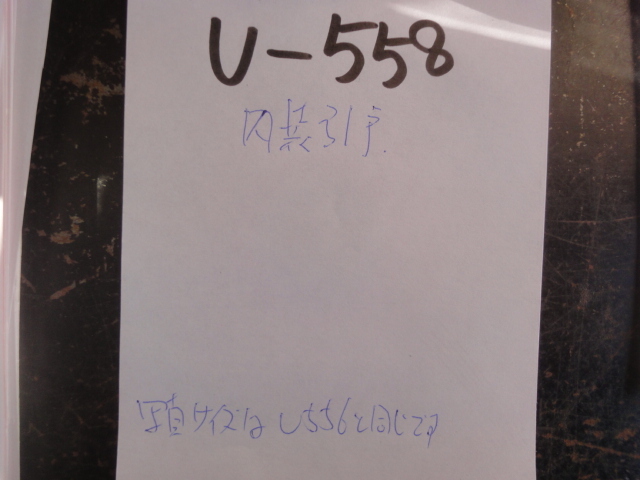 U-558
内装引戸.
写真サイズは U556と同じです